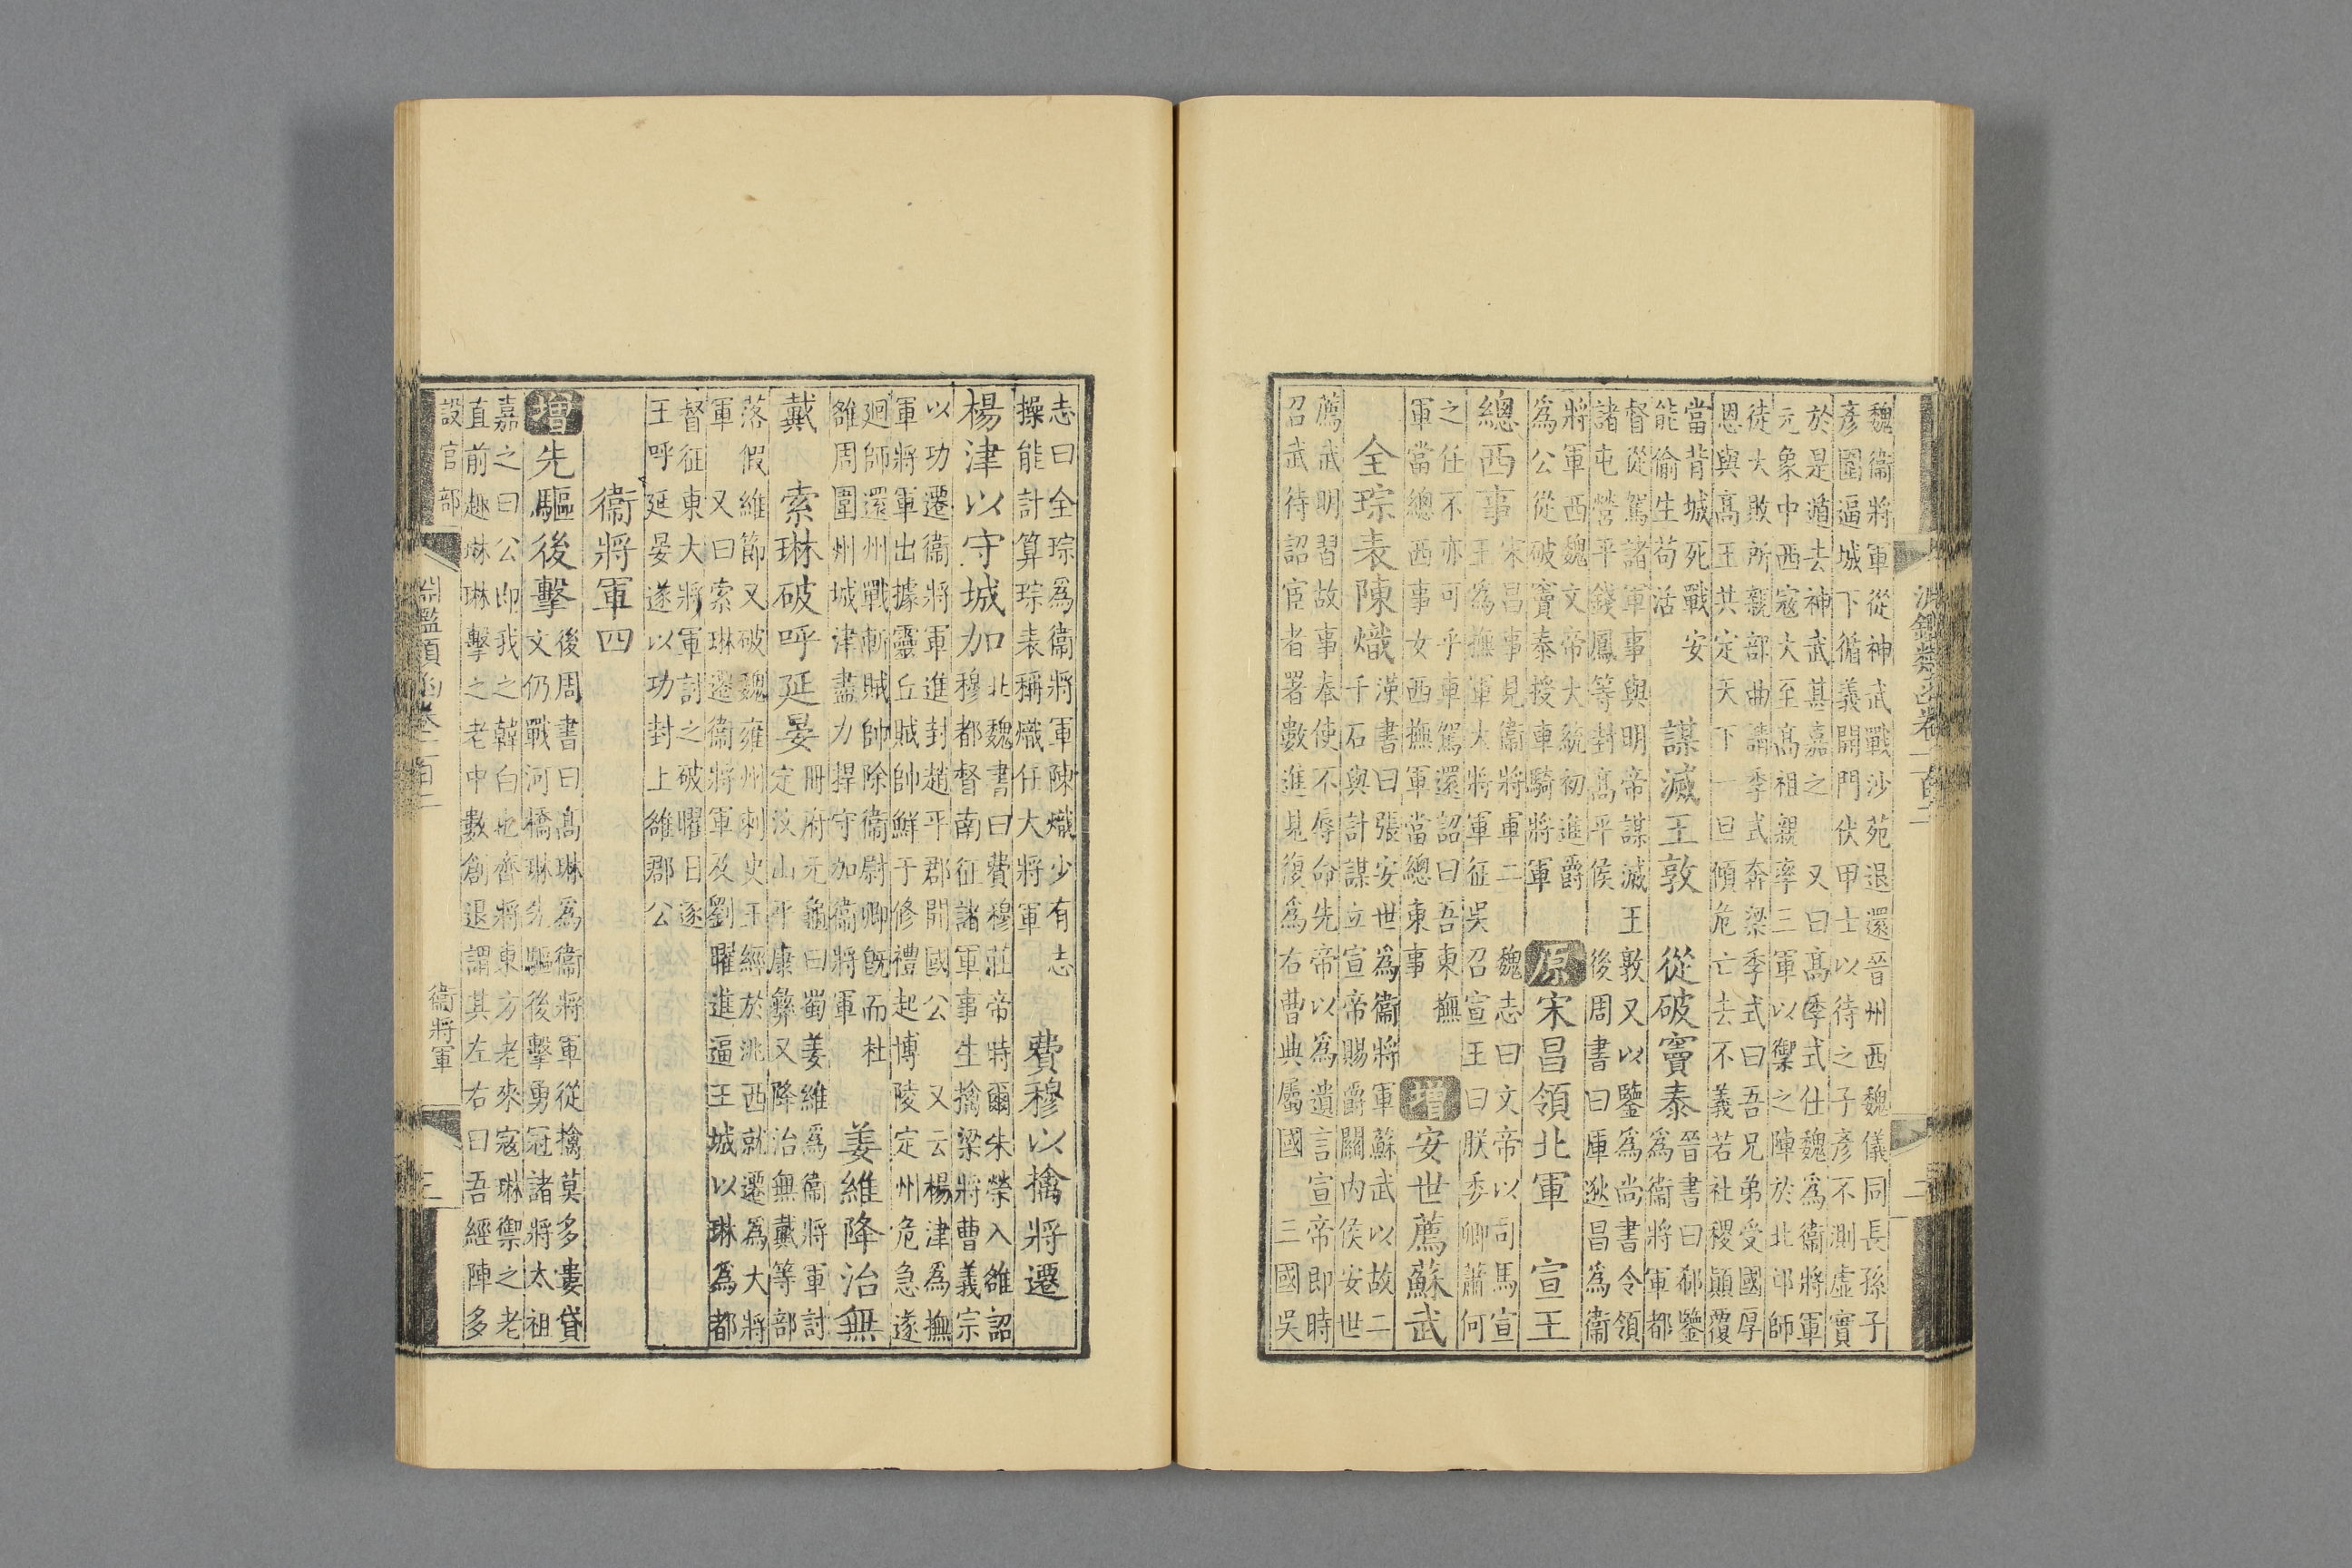 淵鑑類函卷一百二
二
魏衞將軍從神武戰沙苑退還晉州西魏儀同長孫子
彥圍逼城下循義開門伏甲士以待之子彥不測虛實
於是遁去神武甚嘉之　又曰高季式仕魏爲衞將軍
元象中西寇大至高祖親率三軍以禦之陣於北邙師
徒大敗所親部曲請季式奔梁季式曰吾兄弟受國厚
恩與高王共定天下一旦傾危亡去不義若社稷顛覆
當背城死戰安
能偷生苟活
謀滅王敦　從破竇泰
晉書曰郗鑒
爲衞將軍都
督從駕諸軍事與明帝謀滅王敦又以鑒爲尚書令領
諸屯營平錢鳳等封高平侯　後周書曰厙狄昌爲衞
將軍西魏文帝大統初進爵
爲公從破竇泰授車騎將軍
原宋昌領北軍　宣王
總西事
宋昌事見衞將軍二　魏志曰文帝以司馬宣
王爲撫軍大將軍征吳召宣王曰朕委卿蕭何
之任不亦可乎車駕還詔曰吾東撫
軍當總西事女西撫軍當總東事
增安世薦蘇武
全琮表陳熾
漢書曰張安世爲衞將軍蘇武以故二
千石與計謀立宣帝賜爵關內侯安世
薦武明習故事奉使不辱命先帝以爲遺言宣帝即時
召武待詔宦者署數進見復爲右曹典屬國　三國吳
志曰全琮爲衞將軍陳熾少有志
操能計算琮表稱熾任大將軍
費穆以擒將遷
楊津以守城加
北魏書曰費穆莊帝時爾朱榮入雒詔
穆都督南征諸軍事生擒梁將曹義宗
以功遷衞將軍進封趙平郡開國公　又云楊津爲撫
軍將軍出據靈丘賊帥鮮于修禮起博陵定州危急遂
廻師還州戰斬賊帥除衞尉卿旣而杜
雒周圍州城津盡力捍守加衞將軍
姜維降治無
戴　索琳破呼延晏
冊府元龜曰蜀姜維爲衞將軍討
定汶山平康彝又降治無戴等部
落假維節又破魏雍州刺史王經於洮西就遷爲大將
軍　又曰索琳遷衞將軍及劉曜進逼王城以琳爲都
督征東大將軍討之破曜日逐
王呼延晏遂以功封上雒郡公
衞將軍四
增先驅後擊
後周書曰高琳爲衞將軍從擒莫多婁貸
文仍戰河橋琳先驅後擊勇冠諸將太祖
嘉之曰公即我之韓白也齊將東方老來寇琳禦之老
直前趣琳琳擊之老中數創退謂其左右曰吾經陣多
設官部
淵鑑類函卷一百二
衞將軍
三